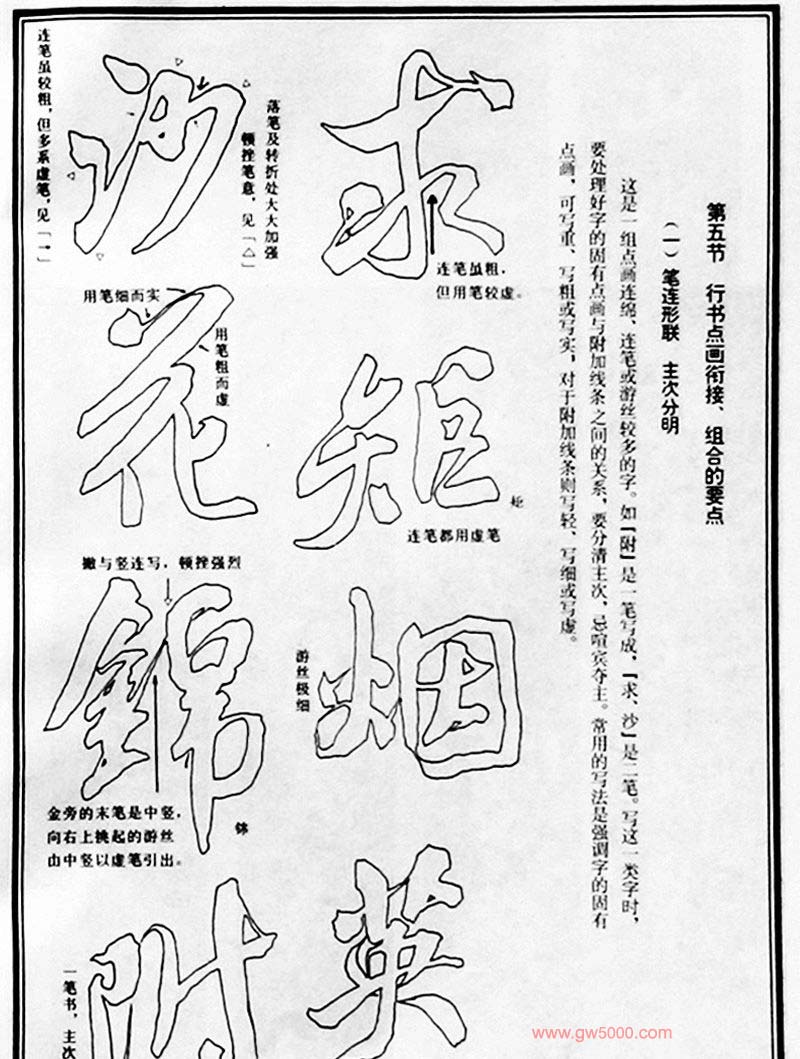 第五节　行书点画衔接、组合的要点
（一）笔连形联　主次分明
这是一组点画连绵、连笔或游丝较多的字。如「附」是一笔写成，「求、沙」是二笔。写这一类字时，
要处理好字的固有点画与附加线条之间的关系，要分清主次，忌喧宾夺主。常用的写法是强调字的固有
点画，可写重、写粗或写实，对于附加线条则写轻、写细或写虚。
求
连笔虽粗，
但用笔较虚。
矩
矩
连笔都用虚笔
烟
游丝极细
英
沙
落笔及转折处大大加强
顿挫笔意，见「△」
连笔虽较粗，但多系虚笔，见「→」
花
用笔细而实
用笔粗而虚
撇与竖连写，顿挫强烈
锦
金旁的末笔是中竖，
向右上挑起的游丝
由中竖以虚笔引出。
附
一笔书，主次
www.gw5000.com